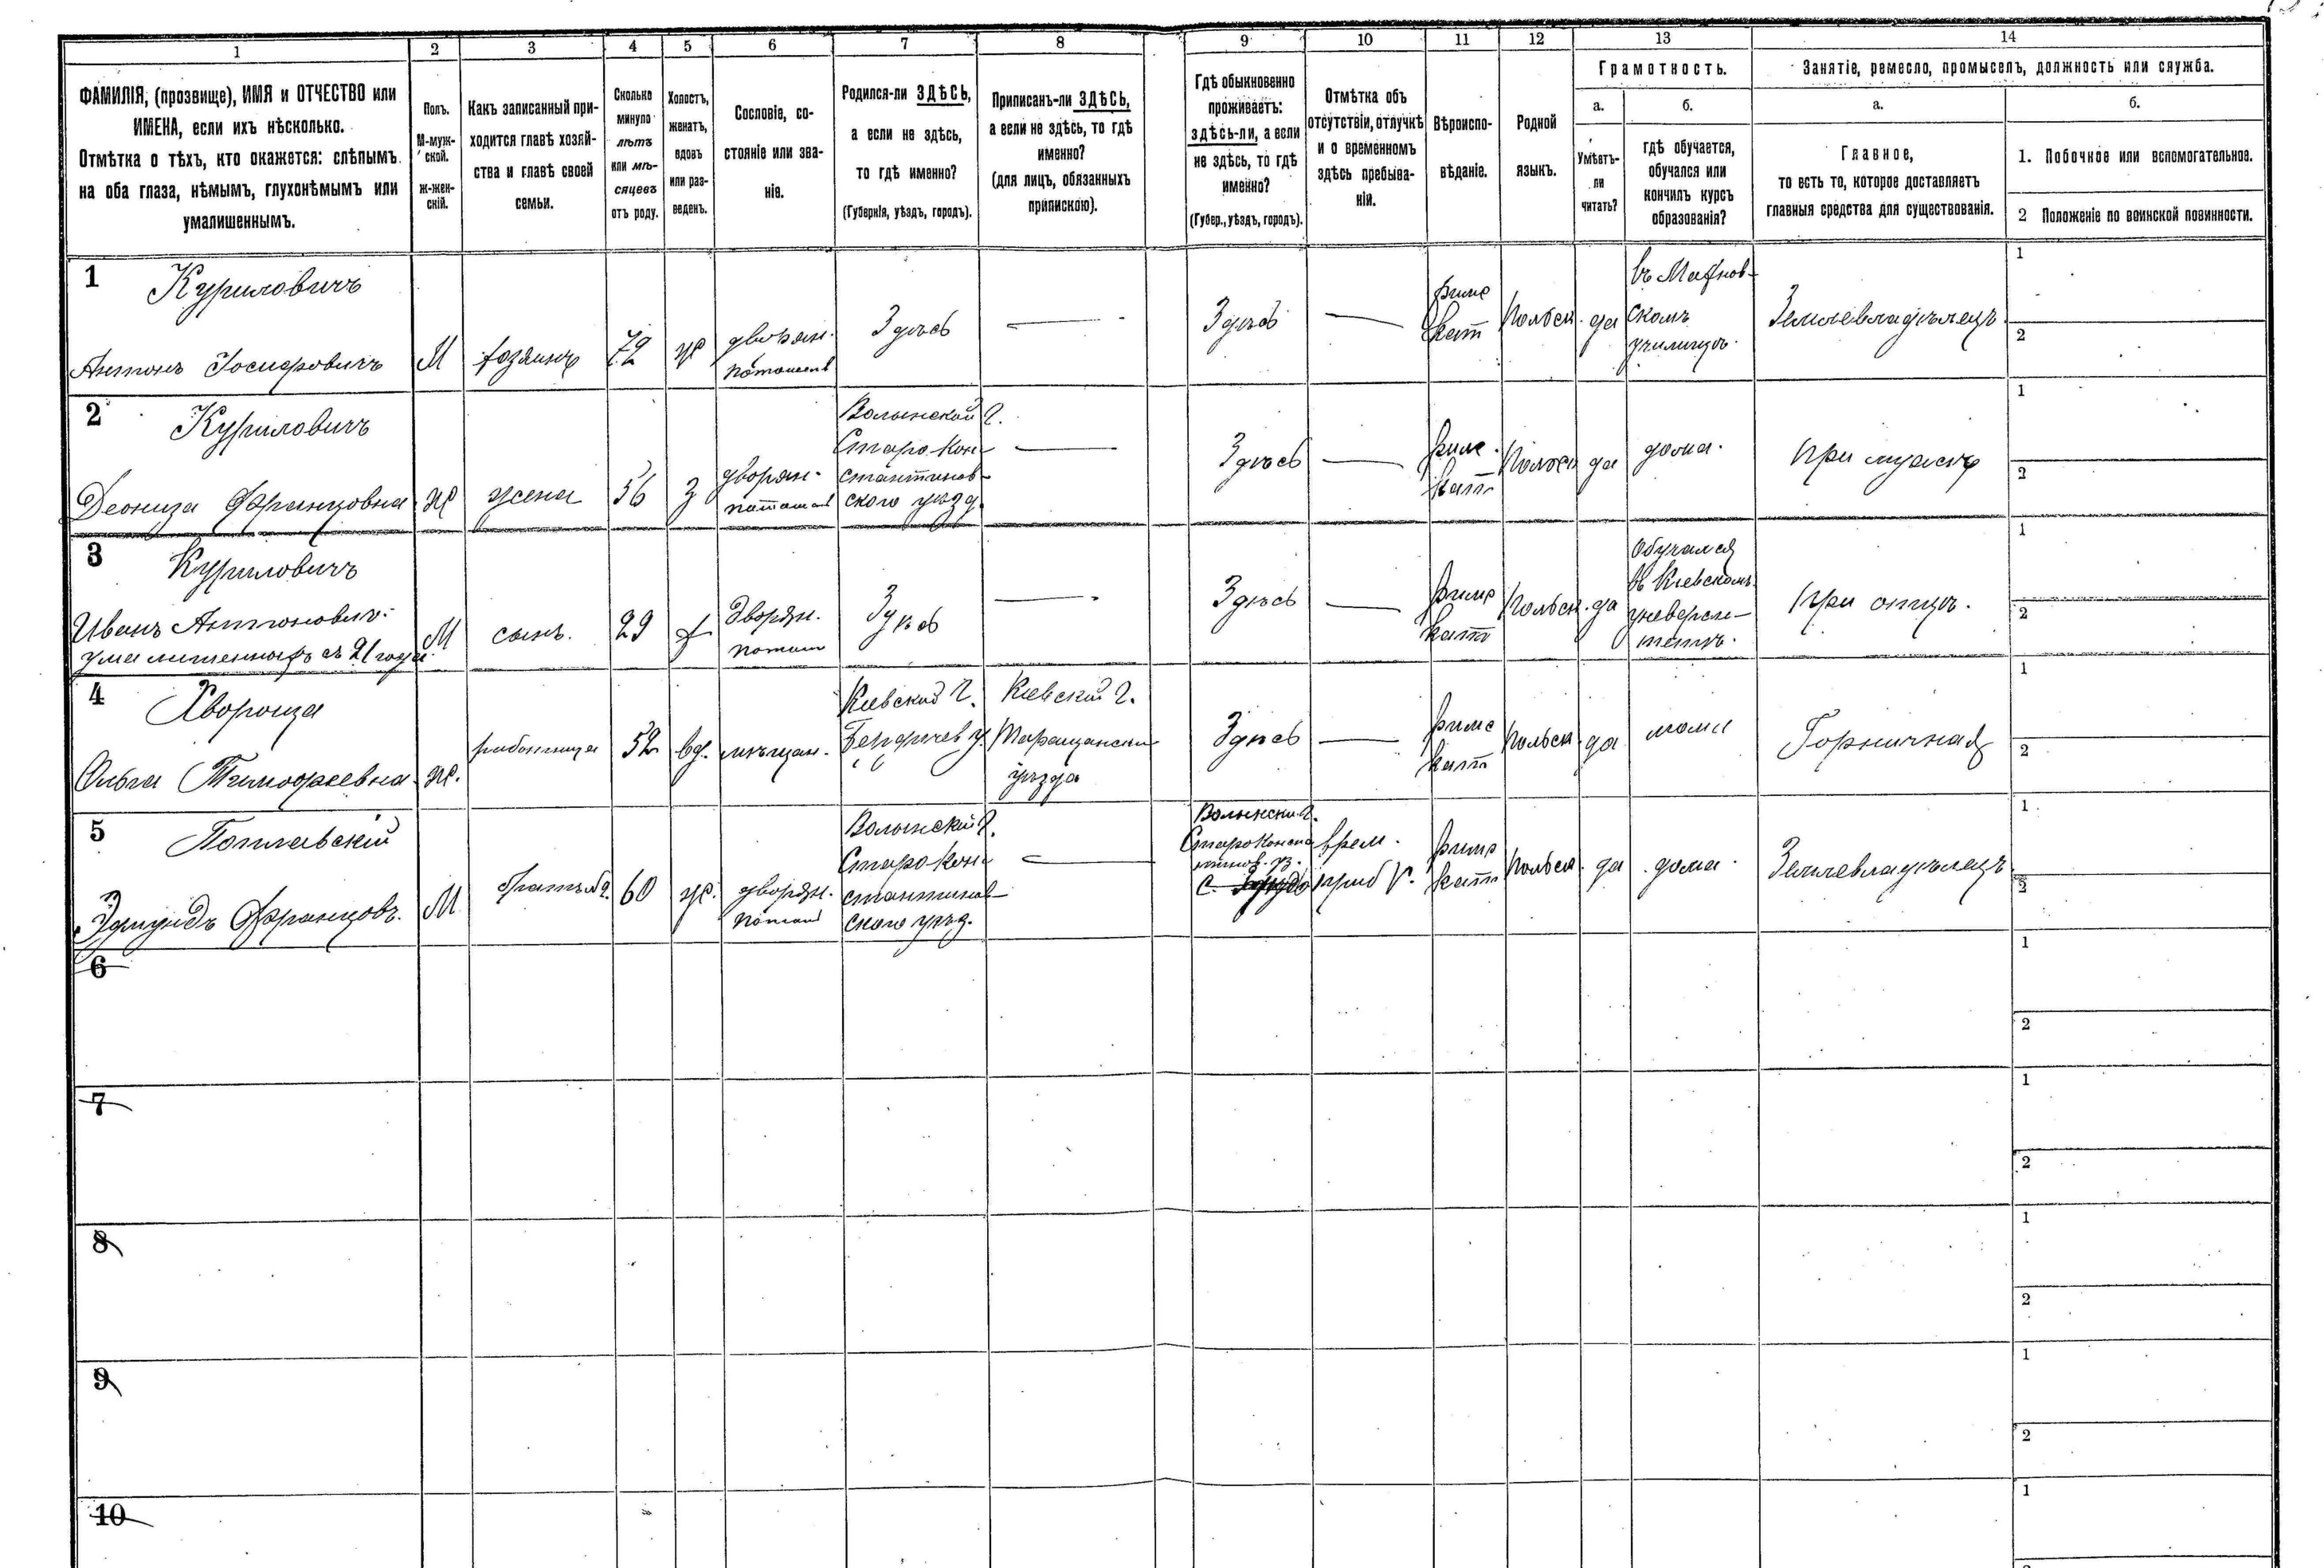 1 2 3 4 5 6 7 8 9 10 11 12 13 14
ФАМИЛІЯ, (прозвище), ИМЯ и ОТЧЕСТВО или
ИМЕНА, если ихъ нѣсколько.
Отмѣтка о тѣхъ, кто окажется: слѣпымъ
на оба глаза, нѣмымъ, глухонѣмымъ или
умалишеннымъ.
Полъ.
М-муж-
ской.
ж-жен-
скій.
Какъ записанный при-
ходится главѣ хозяй-
ства и главѣ своей
семьи.
Сколько
минуло
лѣтъ
или мѣ-
сяцевъ
отъ роду.
Холостъ,
женатъ,
вдовъ
или раз-
веденъ.
Сословіе, со-
стояніе или зва-
ніе.
Родился-ли ЗДѢСЬ,
а если не здѣсь,
то гдѣ именно?
(Губернія, уѣздъ, городъ).
Приписанъ-ли ЗДѢСЬ,
а если не здѣсь, то гдѣ
именно?
(для лицъ, обязанныхъ
припискою).
Гдѣ обыкновенно
проживаетъ:
здѣсь-ли, а если
не здѣсь, то гдѣ
именно?
(Губер., уѣздъ, городъ).
Отмѣтка объ
отсутствіи, отлучкѣ
и о временномъ
здѣсь пребыва-
ніи.
Вѣроиспо-
вѣданіе.
Родной
языкъ.
Грамотность.
а.
Умѣетъ-
ли
читать?
б.
гдѣ обучается,
обучался или
кончилъ курсъ
образованія?
Занятіе, ремесло, промыселъ, должность или служба.
а.
Главное,
то есть то, которое доставляетъ
главныя средства для существованія.
б.
1. Побочное или вспомогательное.
2 Положеніе по воинской повинности.
1
Куриловичъ
Антонъ Іосифовичъ
М
хозяинъ
72
ж
дворян.
потомств
Здѣсь
Здѣсь
римс
кат
польск.
да
скомъ
училищѣ.
Землевладѣлецъ
1
2
2
Куриловичъ
Деониза Францовна
ж
жена
56
з
дворян.
Волынской г.
Старокон-
стантинов-
ского уѣзд.
Здѣсь
римс.
кат.
польск
да
дома.
при мужѣ
1
2
3
Куриловичъ
Иванъ Антонович.
умалишенный съ 21 года
М
сынъ.
29
х
дворян.
потом
Здѣсь
Здѣсь
римс
кат.
польск.
да
Обучался
въ Кіевскомъ
университ-
тетѣ.
при отцѣ.
1
2
4
Ольга Тимофеевна
ж.
работница
52
вд.
мѣщан.
Кіевской г.
Бердичев у.
Кіевской г.
Таращанскаго
уѣзда
Здѣсь
римс
кат.
польск.
да
Горничная
1
2
5
Поплавскій
Эдмундъ Францовъ.
М
60
ж.
дворян.
потом
Волынской г.
Старокон-
стантинов-
ского уѣзд.
Волынской г.
Староконста
тинов. уз.
с.
врем.
приб.
римс
кат.
польск.
да
дома.
Землевладѣлецъ
1
2
6
1
2
7
1
2
8
1
2
9
1
2
10
1